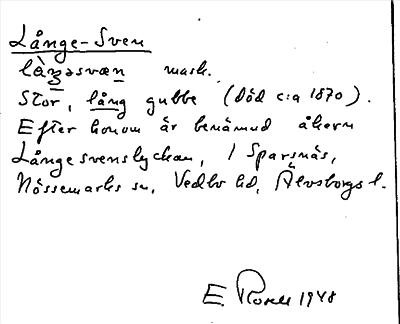 Långe-Sven
làŋəsvæn mask.
Stor, lång gubbe (död c:a 1870).
Efter honom är benämnd åkern
Långesvenslyckan, i Sparsnäs,
Nössemarks sn, Vedbo hd, Älvsborgs l.
E. 1948